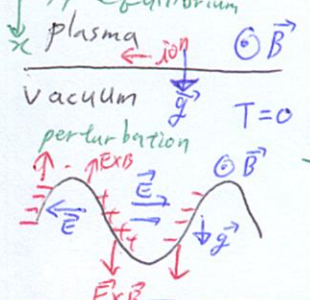 equilibrium
x plasma ← ion ⊙ B⃗
vacuum g⃗ T=0
perturbation
E×B E⃗ ⊙ B⃗
E⃗ g⃗
E×B